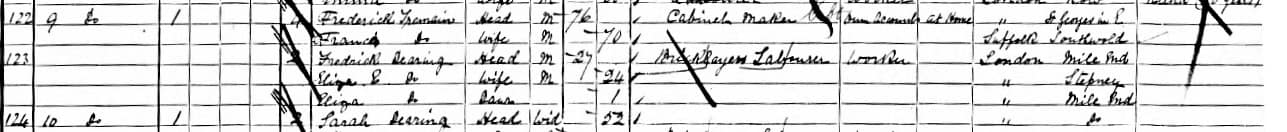 122 9 Do 1 4 Frederick Tremain Head M 76 Cabinet Maker Own Account at Home " St Georges in E
Frances Do Wife M 70 Suffolk Southwold
123 2 Fredrick Dearing Head M 27 Bricklayers Labourer Worker London Mile End
Eliza E Do Wife M 24 " Stepney
Eliza Do Daur 1 " Mile End
124 10 Do 1 2 Sarah Dearing Head Wid 52 " Do